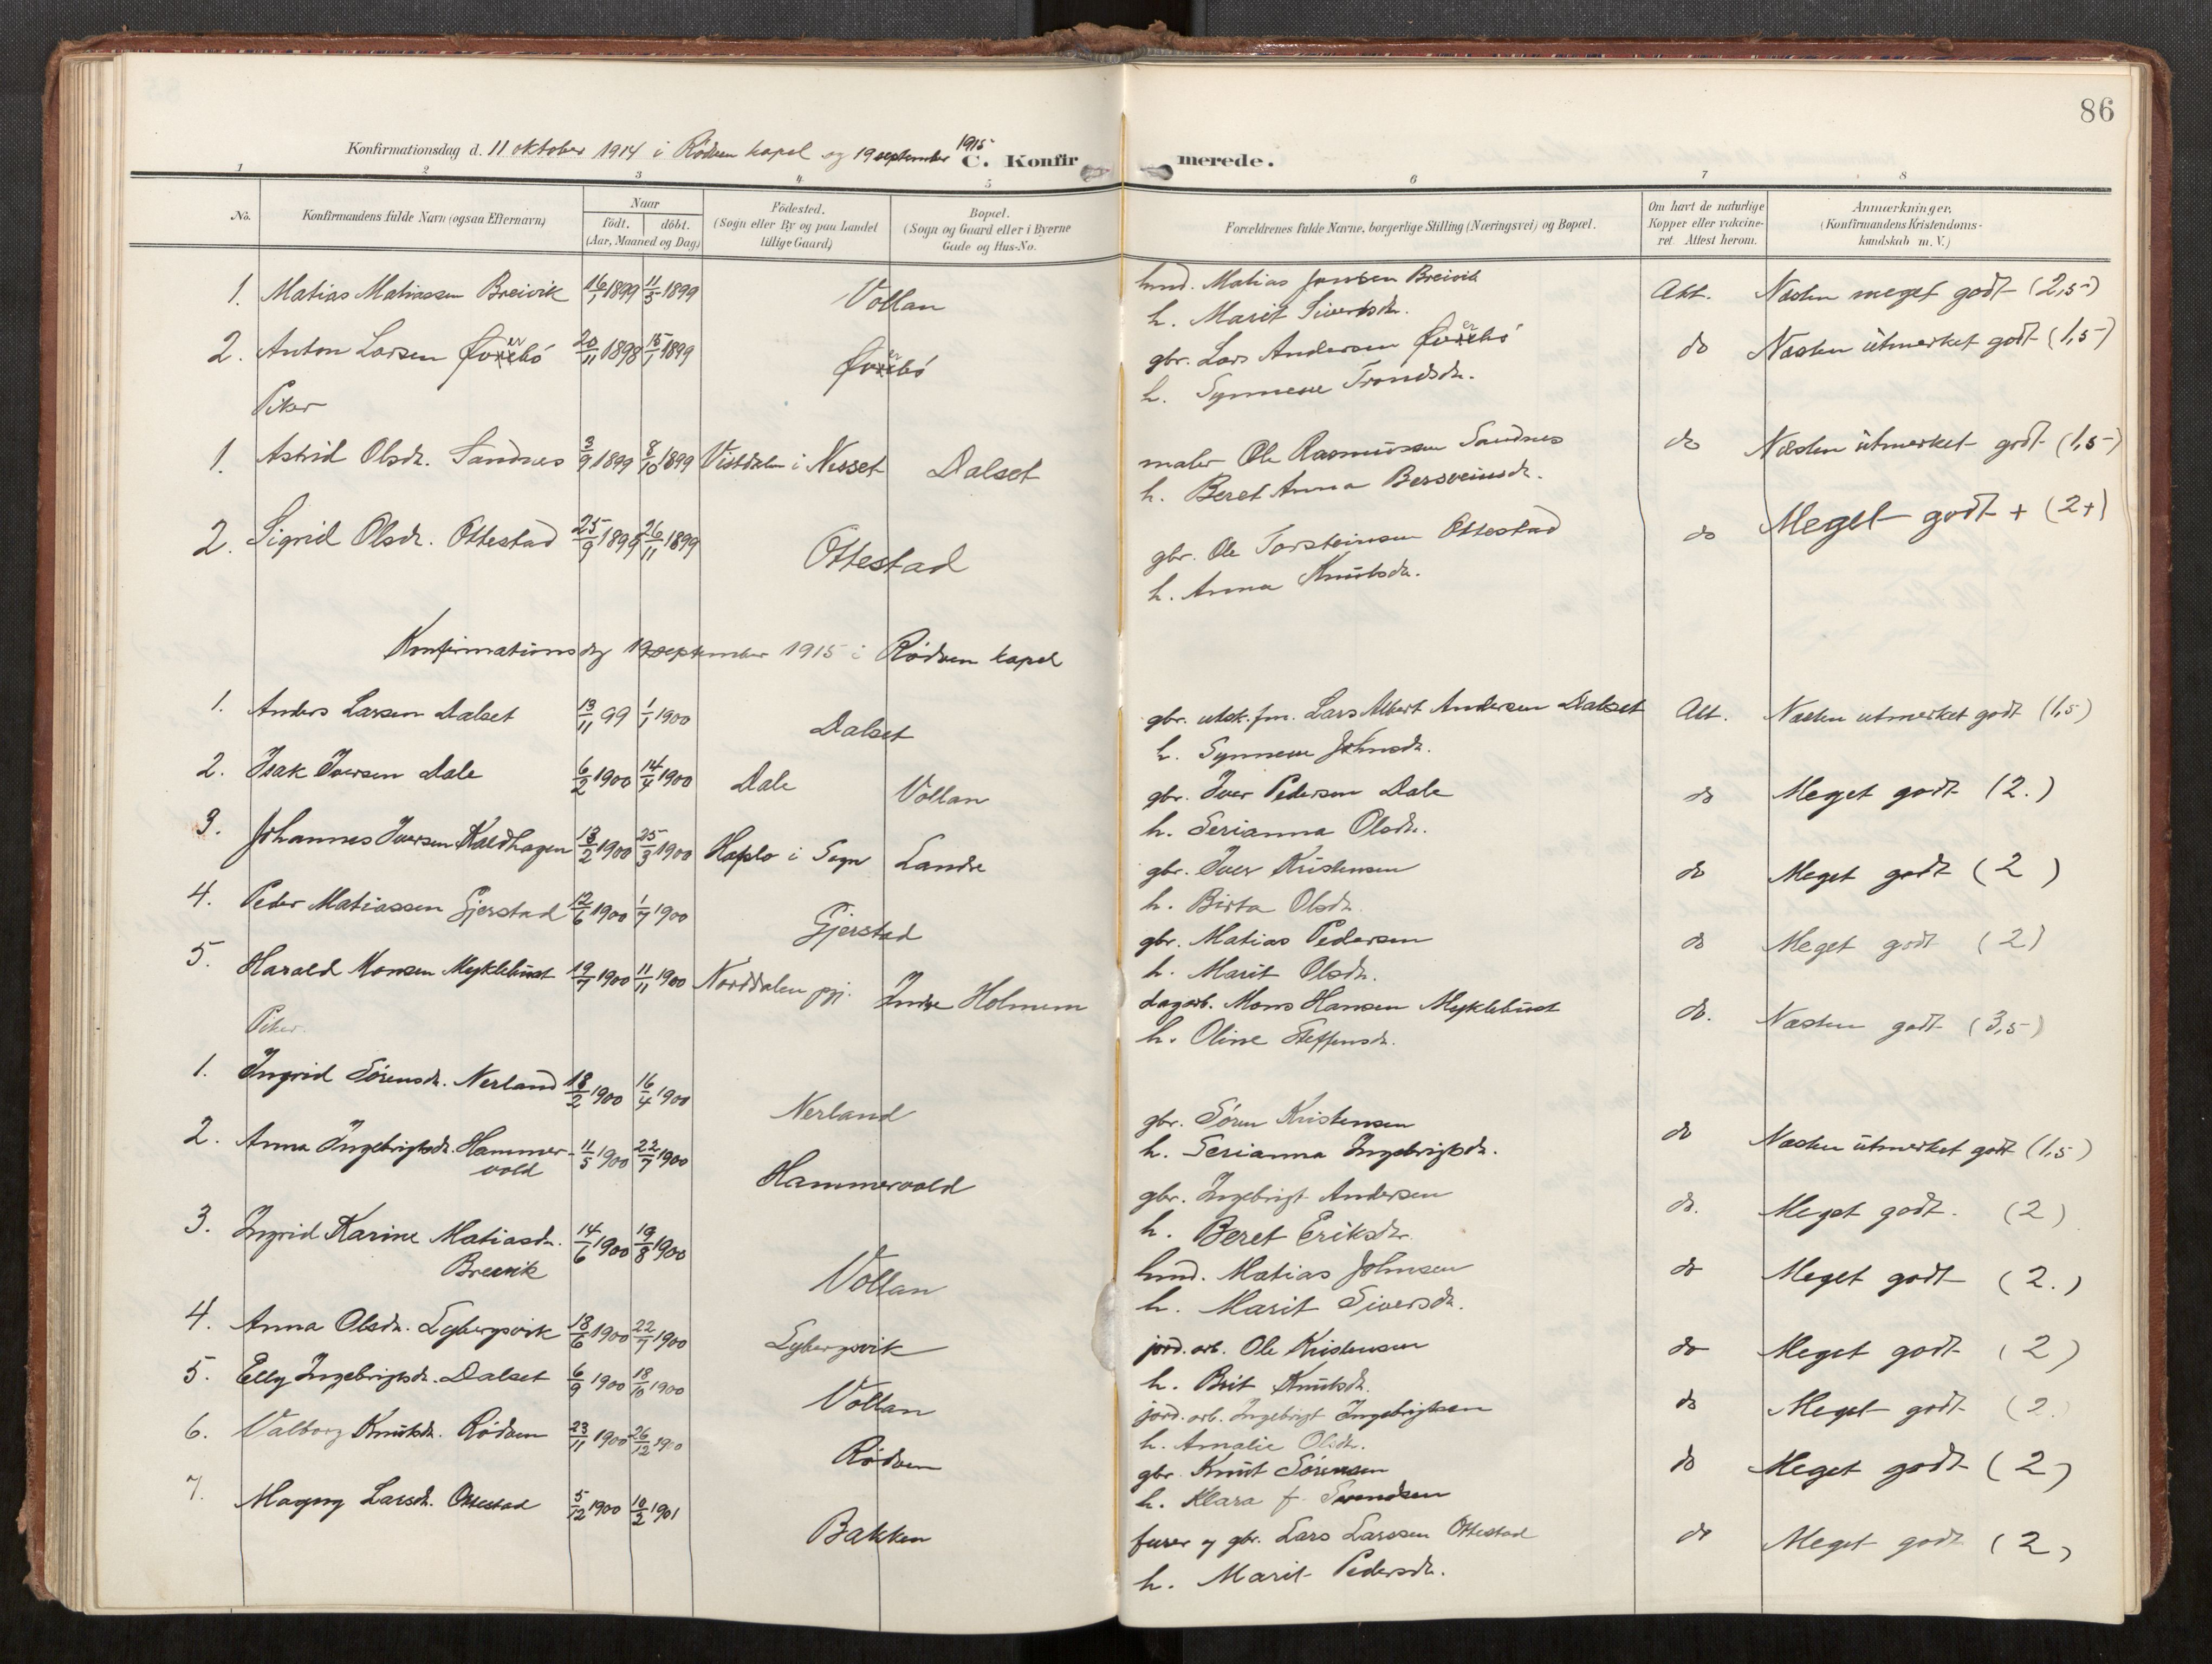 86
Konfirmationsdag d. 11 oktober 1914 i Rødven kapel og 19 september 1915
C. Konfirmerede.
1 2 3 4 5 6 7 8
No. Konfirmandens fulde Navn (ogsaa Efternavn) Naar født. døbt. (Aar, Maaned og Dag) Fødested. (Sogn eller By og paa Landet tillige Gaard) Bopæl. (Sogn og Gaard eller i Byerne Gade og Hus-No. Forældrenes fulde Navne, borgerlige Stilling (Næringsvei) og Bopæl. Om havt de naturlige Kopper eller vaccineret. Attest herom. Anmærkninger. (Konfirmandens Kristendomskundskab m. V.)
1. Matias Matiassen Breivik 16/1 1899 11/5 1899 Vollan hmd. Matias Jonsen Breivik Att. Næsten meget godt (2,5)
h. Marit Sivertsdr.
2. Anton Larsen Øverbø 20/11 1898 15/1 1899 Øverbø gbr. Lars Andersen Øverbø do Næsten utmerket godt (1,5)
h. Synneve Trondsdr.
Piker
1. Astrid Olsdr. Sandnes 3/9 1899 8/10 1899 Vistdalen i Nesset Dalset maler Ole Rasmussen Sandnes do Næsten utmerket godt (1,5)
h. Beret Anna Bersveinsdr.
2. Sigrid Olsdr. Ottestad 25/9 1899 26/11 1899 Ottestad gbr. Ole Torsteinsen Ottestad do Meget godt + (2+)
h. Anna Knutsdr.
Konfirmationsdag 19 september 1915 i Rødven kapel
1. Anders Larsen Dalset 13/11 99 1/1 1900 Dalset gbr. utsk.fm. Lars Albert Andersen Dalset Att. Næsten utmerket godt (1,5)
h. Synneve Johnsdr.
2. Isak Iversen Dale 6/2 1900 14/4 1900 Dale Vollan gbr. Iver Pedersen Dale do Meget godt (2.)
h. Serianna Olsdr.
3. Johannes Iversen Kaldhagen 13/2 1900 25/3 1900 Hafslo i Sogn Landre gbr. Iver Kristensen do Meget godt (2)
h. Birta Olsdr.
4. Peder Matiassen Gjerstad 12/6 1900 1/7 1900 Gjerstad gbr. Matias Pedersen do Meget godt (2)
h. Marit Olsdr.
5. Harald Monsen Myklebust 19/7 1900 11/11 1900 Norddalen pgj. Indre Holmem dagarb. Mons Hansen Myklebust do. Næsten godt (3,5)
h. Oline Steffensdr.
Piker.
1. Ingrid Sörensdr. Nerland 18/2 1900 16/4 1900 Nerland gbr. Sören Kristensen do Næsten utmerket godt (1,5)
h. Serianna Ingebrigtsdr.
2. Anna Ingebrigtsdr. Hammervold 11/5 1900 22/7 1900 Hammervold gbr. Ingebrigt Andersen do. Meget godt. (2)
h. Beret Eriksdr.
3. Ingrid Karine Matiasdr. Breivik 14/6 1900 19/8 1900 Vollan hmd. Matias Johnsen do Meget godt (2.)
h. Marit Siversdr.
4. Anna Olsdr. Lybergsvik 18/6 1900 22/7 1900 Lybergsvik jord.arb. Ole Kristensen do Meget godt (2)
h. Brit Knutsdr.
5. Elly Ingebrigtsdr. Dalset 6/9 1900 18/10 1900 Vollan jord.arb. Ingebrigt Ingebrigtsen do Meget godt (2.
h. Amalie Olsdr.
6. Valborg Knutsdr. Rödven 23/11 1900 26/12 1900 Rödven gbr. Knut Sörensen do Meget godt (2)
h. Klara f. Svendsen
7. Magny Larsdr. Ottestad 5/12 1900 10/2 1901 Bakken furer og gbr. Lars Larssen Ottestad do Meget godt (2)
h. Marit Pedersdr.